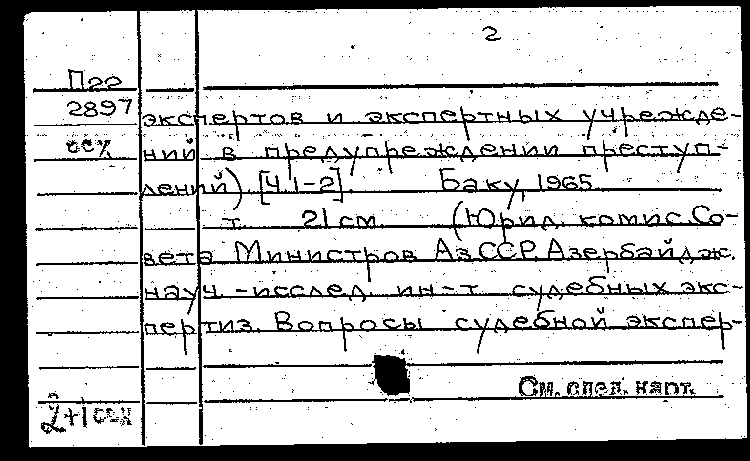 2
П22
2897
экспертов и экспертных учрежде-
ний в предупреждении преступ-
лений) [Ч. 1-2]. Баку, 1965
т. 21 см. (Юрид. комис. Со-
вета Министров Аз.ССР. Азербайдж.
науч.-исслед. ин-т судебных экс-
пертиз. Вопросы судебной экспер-
См. след. карт.
2+1 сех